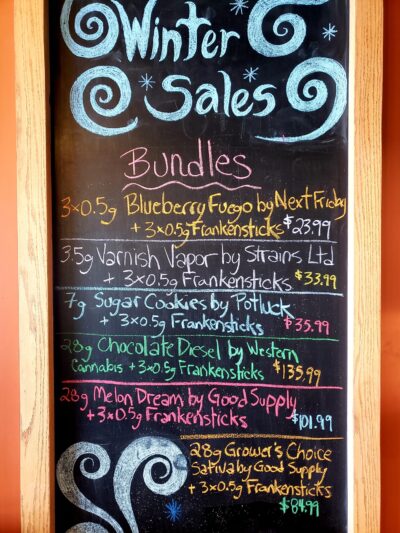 Winter
Sales
Bundles
3x0.5g Blueberry Fuego by Next Friday
+ 3x0.5g Frankensticks $23.99
3.5g Varnish Vapor by Strains Ltd
+ 3x0.5g Frankensticks $33.99
7g Sugar Cookies by Potluck
+ 3x0.5g Frankensticks $35.99
28g Chocolate Diesel by Western
Cannabis + 3x0.5g Frankensticks $135.99
28g Melon Dream by Good Supply
+ 3x0.5g Frankensticks $101.99
28g Grower's Choice
Sativa by Good Supply
+ 3x0.5g Frankensticks
$84.99